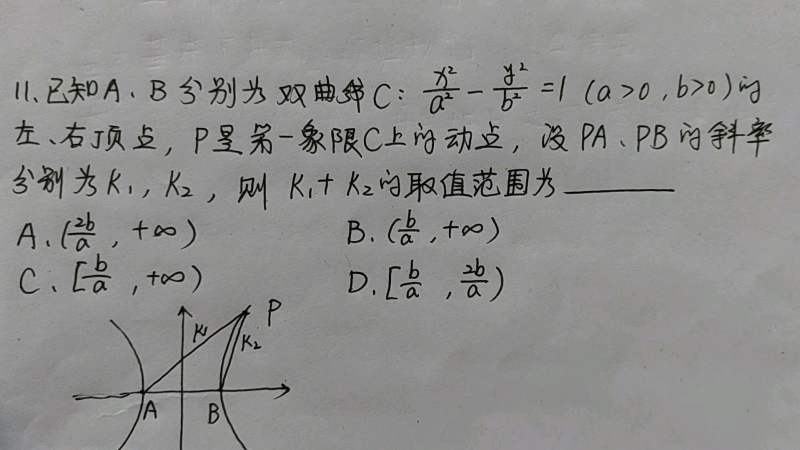 11、已知A、B分别为双曲线C：x²/a² - y²/b² = 1 (a>0, b>0)的
左、右顶点，P是第一象限C上的动点，设PA、PB的斜率
分别为K₁，K₂，则 K₁+K₂的取值范围为______
A、(2b/a, +∞) B、(b/a, +∞)
C、[b/a, +∞) D、[b/a, 2b/a)
P
K₁ K₂
A B